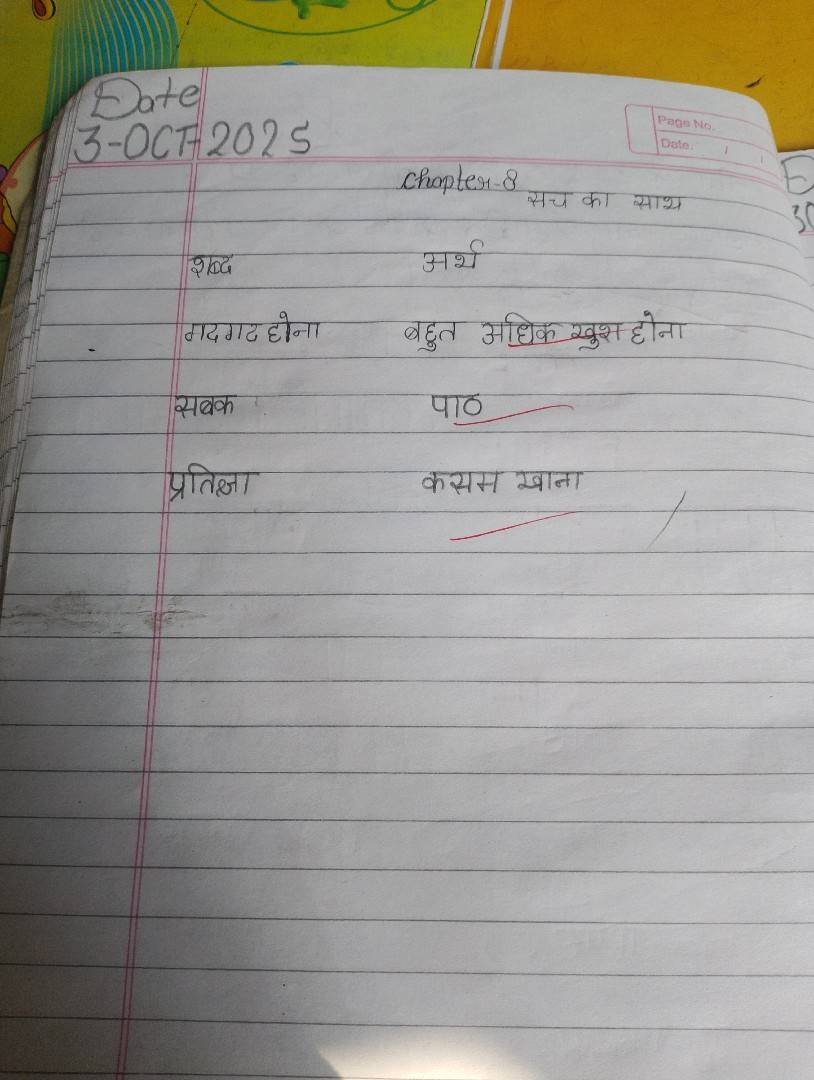 Date
3-OCT-2025
Page No.
Date. / /
Chapter-8
सच का साथ
शब्द अर्थ
गदगद होना बहुत अधिक खुश होना
सबक पाठ
प्रतिज्ञा कसम खाना